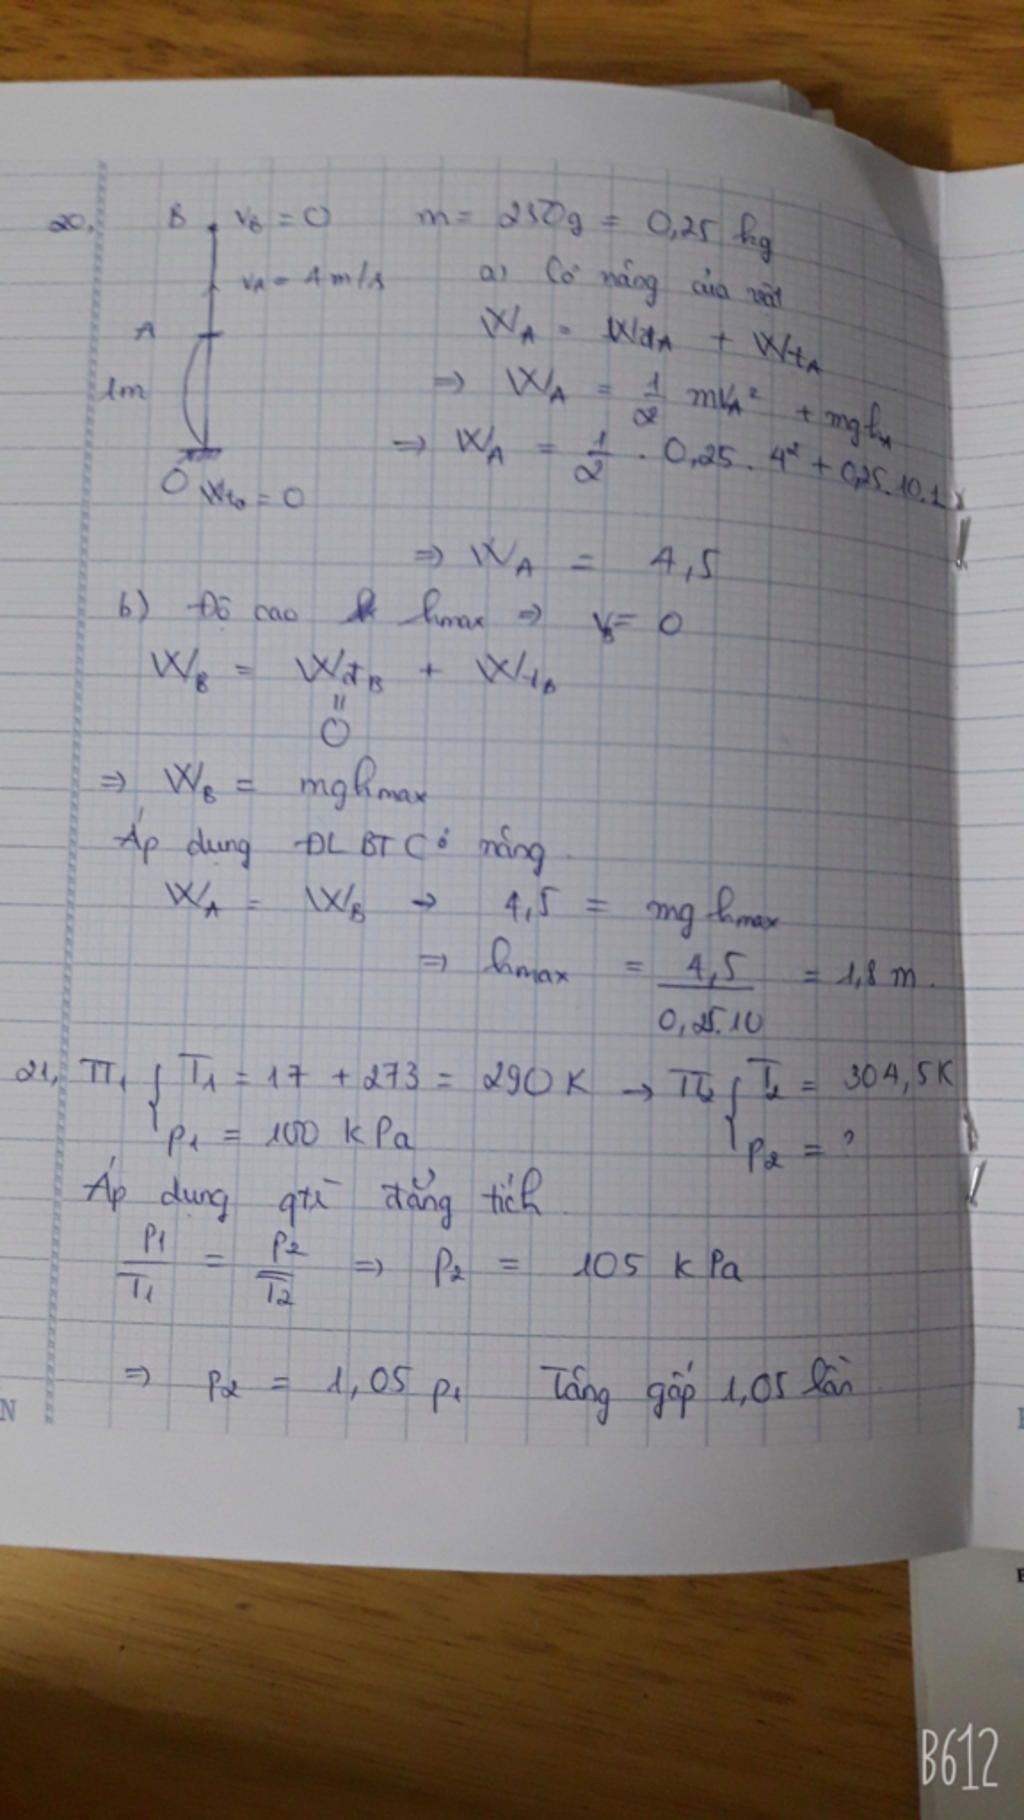 20. B v_B = 0 m = 250g = 0,25 kg
v_A = 4 m/s a) Cơ năng của vật
A W_A = W_đA + W_tA
1m => W_A = 1/2 mv_A² + mgh_A
=> W_A = 1/2 . 0,25 . 4² + 0,25.10.1
O W_to = 0
=> W_A = 4,5
b) Độ cao h_max => v_B = 0
W_B = W_đB + W_tB
"
O
=> W_B = mgh_max
Áp dụng ĐLBT Cơ năng
W_A = W_B → 4,5 = mgh_max
=> h_max = 4,5 / 0,25.10 = 1,8 m.
21, TT₁ { T₁ = 17 + 273 = 290K → TT₂ { T₂ = 304,5K
p₁ = 100 kPa p₂ = ?
Áp dụng qtr đẳng tích
p₁/T₁ = p₂/T₂ => p₂ = 105 kPa
=> p₂ = 1,05 p₁ Tăng gấp 1,05 lần
N
B612